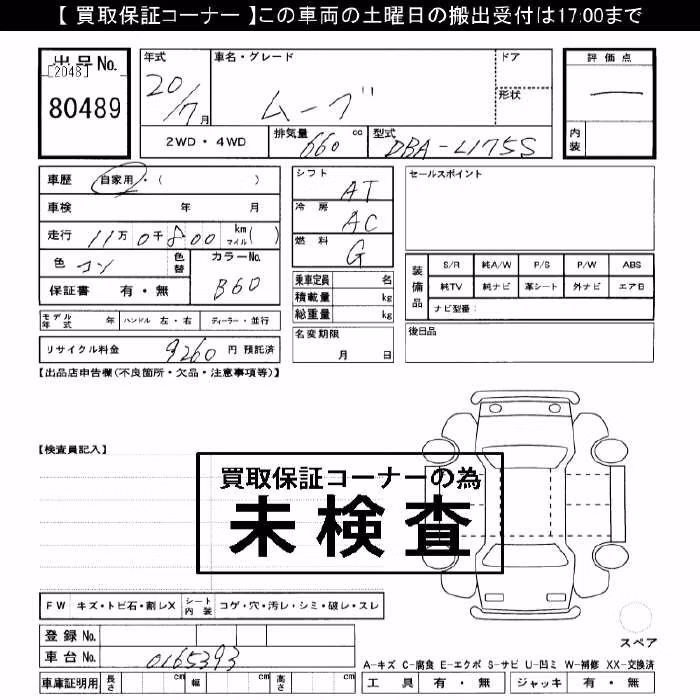 【 買取保証コーナー 】この車両の土曜日の搬出受付は17:00まで
出品No.
[2048]
80489
年式
20/7月
車名・グレード
ムーブ
ドア
形状
評価点
―
内装
2WD・4WD
排気量
660 cc
型式
DBA-L175S
車歴 自家用・( )
車検 年 月
走行 11万0千800 km マイル( )
色 コン 色替
カラーNo.
B60
保証書 有・無
シフト AT
冷房 AC
燃料 G
乗車定員 名
積載量 kg
総重量 kg
名変期限
月 日
セールスポイント
装備品
S/R 純A/W P/S P/W ABS
純TV 純ナビ 革シート 外ナビ エアB
ナビ型番:
後日品
モデル年式 年 ハンドル 左・右 ディーラー・並行
リサイクル料金 9260 円 預託済
【出品店申告欄(不良箇所・欠品・注意事項等)】
【検査員記入】
買取保証コーナーの為
未検査
FW キズ・トビ石・割レX シート内装 コゲ・穴・汚レ・シミ・破レ・スレ
登録No.
車台No. 0165393
車庫証明用 長さ cm 幅 cm 高さ cm
スペア
A-キズ C-腐食 E-エクボ S-サビ U-凹ミ W-補修 XX-交換済
工具 有・無 ジャッキ 有・無